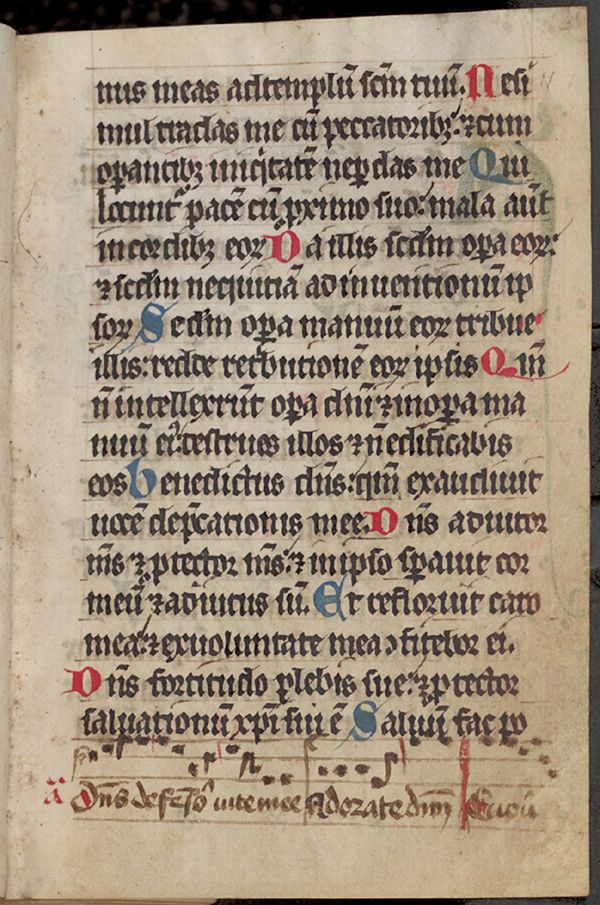 nus meas ad templū scm̄ tuū. Ne si
mul tradas me cū peccatoribꝫ: ⁊ cum
operantibꝫ iniqͥtatē ne perdas me Qui
locunt᷑ pacē cū pximo suo: mala aūt
in cordibꝫ eoꝝ Da illis scdm̄ opa eoꝝ:
⁊ scdm̄ nequiciā ad inuentionū ip
soꝝ Secdm̄ opa manuū eoꝝ tribue
illis: redde retbutionē eoꝝ ipsis Qm̄
n̄ intellexerūt opa dn̄i ⁊ in opa ma
nuū eiꝰ: destrues illos ⁊ n̄ edificabis
eos Benedictus dn̄s: qm̄ exaudiuit
uocē dep̄cationis mee. Dn̄s adiutor
m̄s ⁊ ptector m̄s: ⁊ in ipso sperauit cor
meū ⁊ adiutus sū. Et refloruit caro
mea: ⁊ ex uoluntate mea ↄfitebor ei.
Dn̄s fortitudo plebis sue: ⁊ ptector
saluationū xp̄i sui ē Saluū fac po
a Dn̄s defēsoꝛ uite mee Adorate dn̄m